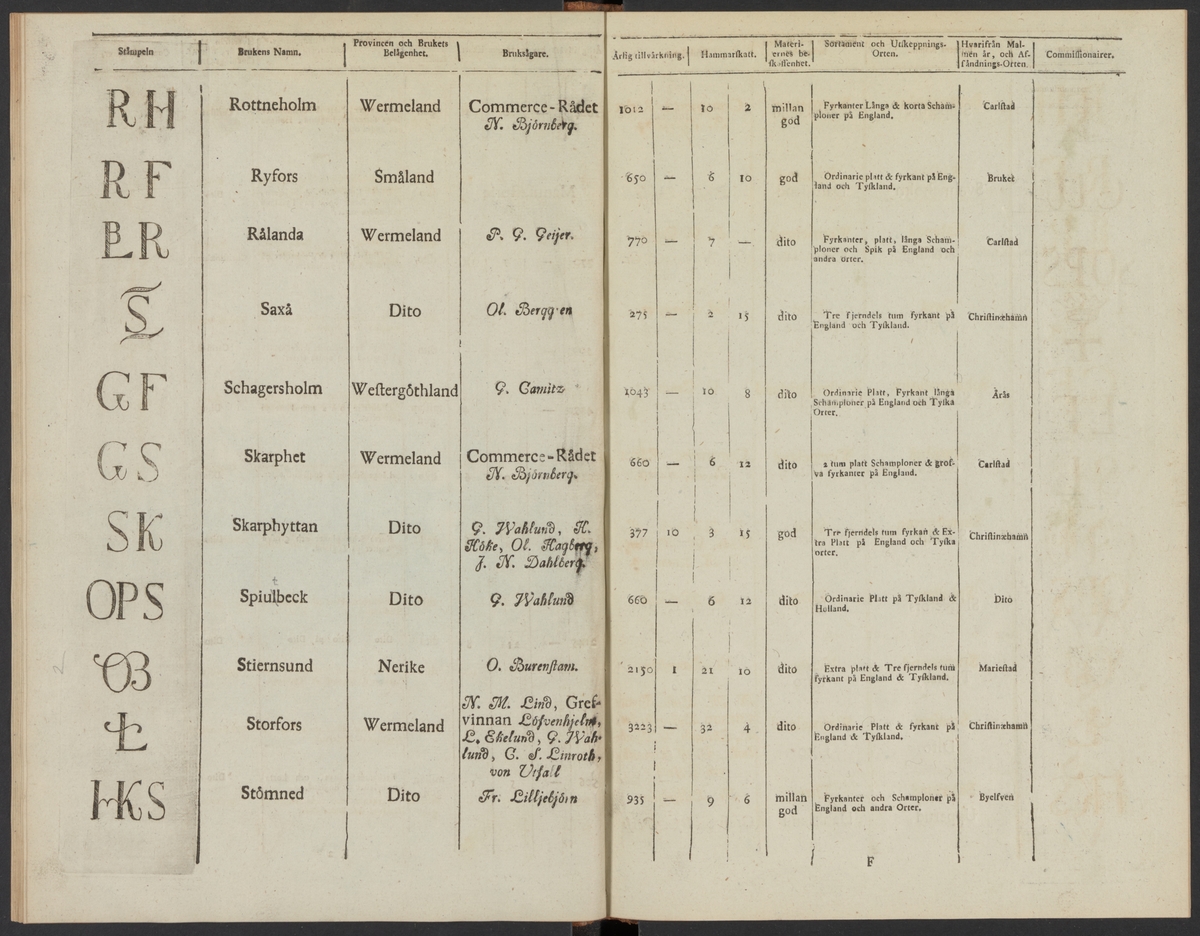 Stämpeln
Brukens Namn.
Provincen och Brukets
Belägenhet.
Bruksägare.
Årlig tillvärkning.
Hammarſkatt.
Materi-
ernes be-
ſkaffenhet.
Sortament och Utſkeppnings-
Orten.
Hvarifrån Mal-
men är, och Af-
ſändnings-Orten.
Commiſſionairer.
RH
Rottneholm
Wermeland
Commerce-Rådet
N. Björnberg.
1012 — 10 2
millan
god
Fyrkanter Långa & korta Scham-
ploner på England.
Carlſtad
RF
Ryfors
Småland
650 — 6 10
god
Ordinarie platt & fyrkant på Eng-
land och Tyſkland.
Bruket
BR
Rålanda
Wermeland
P. G. Geijer.
770 — 7 —
dito
Fyrkanter, platt, långa Scham-
ploner och Spik på England och
andra orter.
Carlſtad
S
Saxå
Dito
Ol. Berggren
275 — 2 15
dito
Tre fjerndels tum fyrkant på
England och Tyſkland.
Chriſtinæhamn
GF
Schagersholm
Weſtergöthland
G. Camitz
1043 — 10 8
dito
Ordinarie Platt, Fyrkant långa
Schamploner på England och Tyſka
Orter.
Årås
GS
Skarphet
Wermeland
Commerce-Rådet
N. Björnberg.
660 — 6 12
dito
2 tum platt Schamploner & grof-
va fyrkanter på England.
Carlſtad
SK
Skarphyttan
Dito
G. Wahlund, H.
Höke, Ol. Hagberg,
J. N. Dahlberg.
377 10 3 15
god
Tre fjerndels tum fyrkan & Ex-
tra Platt på England och Tyſka
orter.
Chriſtinæhamn
OPS
Spiulbeck
Dito
G. Wahlund
660 — 6 12
dito
Ordinarie Platt på Tyſkland &
Holland.
Dito
OB
Stiernsund
Nerike
O. Burenſtam.
2150 1 21 10
dito
Extra platt & Tre fjerndels tum
fyrkant på England & Tyſkland.
Marieſtad
L
Storfors
Wermeland
N. M. Lind, Gref-
vinnan Löfvenhjelm,
L. Ekelund, G. Wah-
lund, C. S. Linroth,
von Utfall
3223 — 32 4
dito
Ordinarie Platt & fyrkant på
England & Tyſkland.
Chriſtinæhamn
HKS
Stömned
Dito
Fr. Lilljebjörn
935 — 9 6
millan
god
Fyrkanter och Schamploner på
England och andra Orter.
Byelfven
F